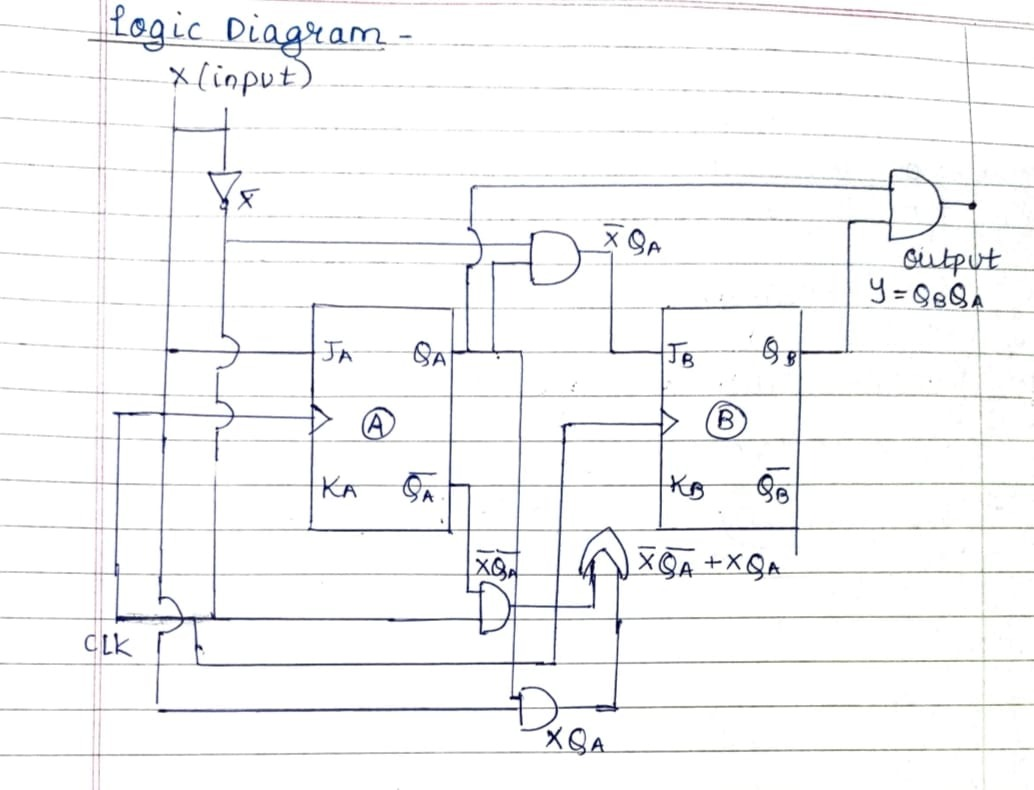 Logic Diagram -
X (input)
X̅
X̅ QA
output
y = QBQA
JA QA
JB QB
A
B
KA Q̅A̅
KB Q̅B̅
X̅Q̅A̅
X̅Q̅A̅ + XQA
CLK
XQA